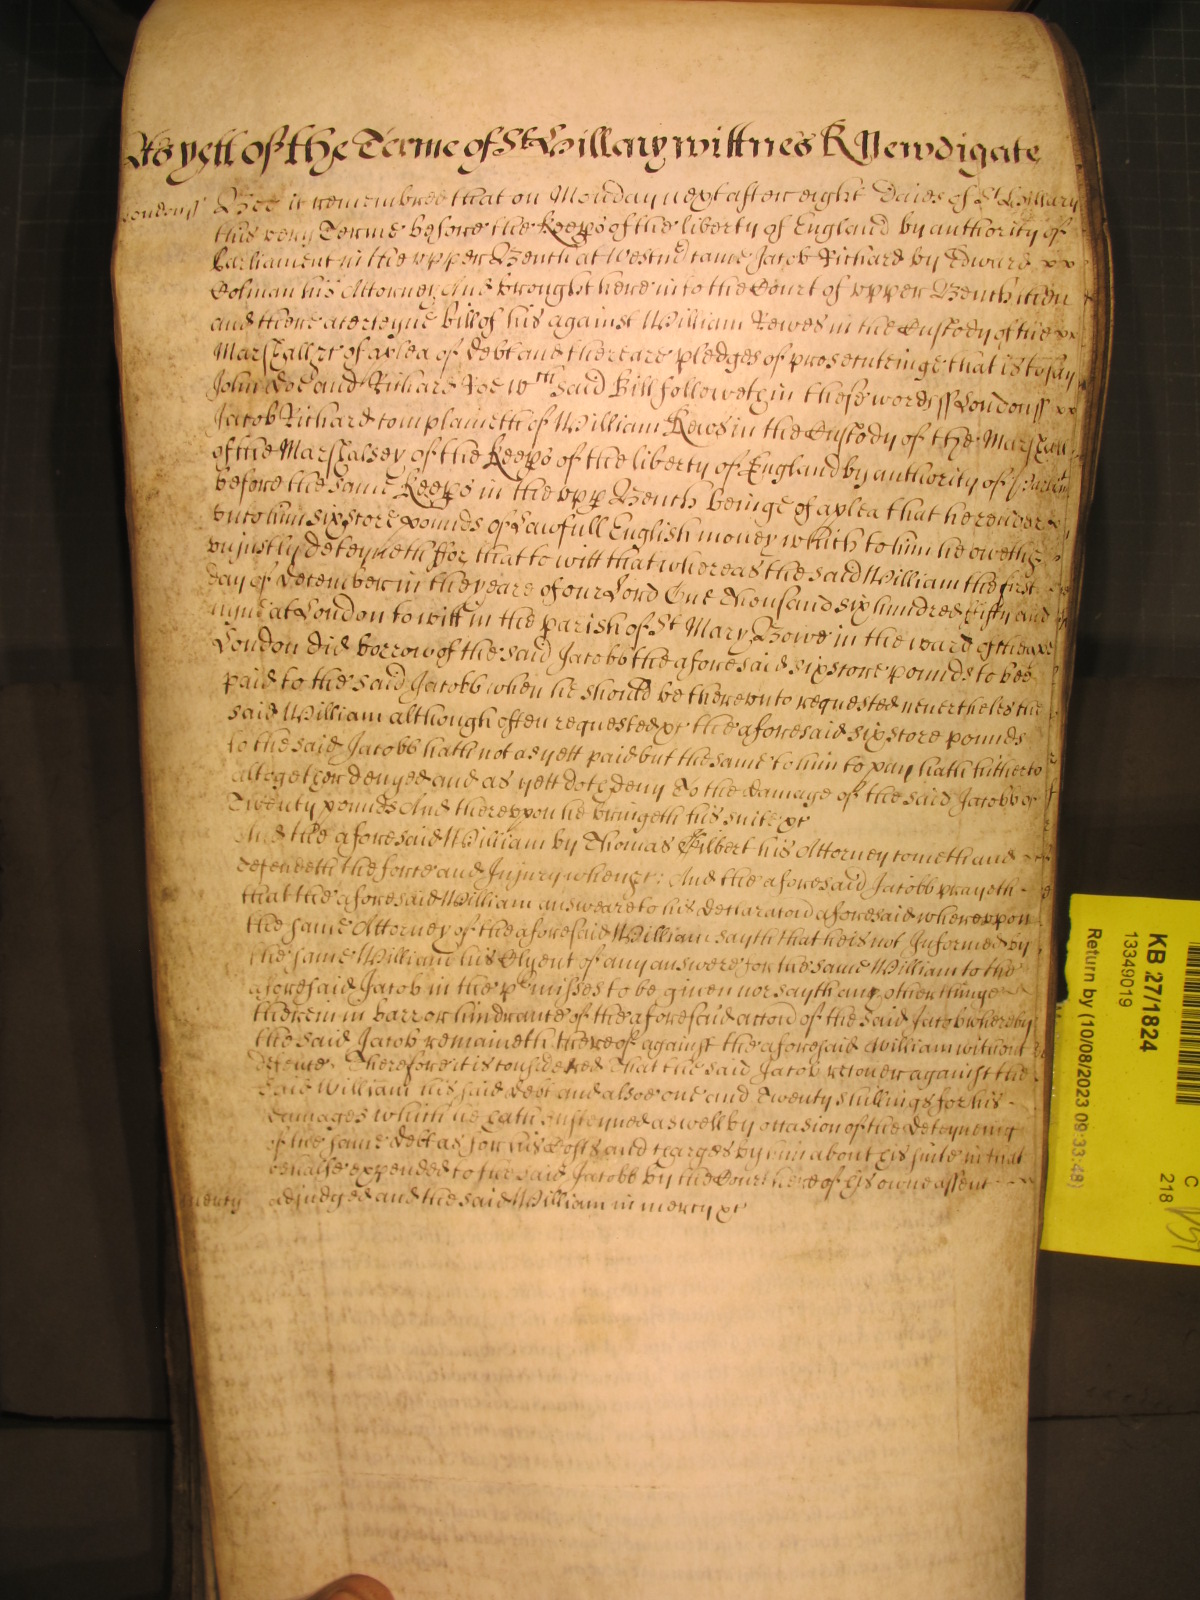 As yett of the Terme of St Hillary wittnes R Newdigate
London ss Bee it remembred that on Monday next after eight Daies of St Hillary
this very Terme before the Keeps of the liberty of England by authority of
Parliament in the upper Bench at Westm came Jacob Richard by Edward xx
Colman his Attorney And brought here into the Court of upper Bench then
and there a certeyne Bill of his against William Kewes in the Custody of the xx
Marshall &c of a plea of debt and there are pledges of prosecuteinge that is to say
John Doe and Richard Roe wch said Bill followeth in these words ss London ss xx
Jacob Richard complaineth of William Kews in the Custody of the Marshall
of the Marshalsey of the Keeps of the liberty of England by authority of Parliamt
before the same Keeps in the upp Bench beinge of a plea that he render
unto him six score pounds of Lawfull English money which to him he oweth &
unjustly deteyneth ffor that to witt that whereas the said William the first
day of December in the yeare of our Lord One Thousand six hundred fifty and
nyne at London to witt in the parish of St Mary Bowe in the ward of Cheape
London did borrow of the said Jacobb the aforesaid six score pounds to bee
paid to the said Jacobb when he should be thereunto requested nevertheles the
said William although often requested &c the aforesaid six score pounds
to the said Jacobb hath not as yett paid but the same to him to pay hath hitherto
altogether denyed and as yett doth deny To the damage of the said Jacobb of
Twenty pounds And thereuppon he bringeth his suite &c
And the aforesaid William by Thomas Gilbert his Attorney cometh and
defendeth the force and Injury when &c: And the aforesaid Jacobb prayeth
that the aforesaid William answeare to his declaracon aforesaid whereuppon
the same Attorney of the aforesaid William sayth that he is not Informed by
the same William his Clyent of any answere for the same William to the
aforesaid Jacob in the pmisses to be given nor sayth any other thinge
therein in barr or hindrance of the aforesaid accon of the said Jacob whereby
the said Jacob remaineth thereof against the aforesaid William without
defence. Therefore it is considered That the said Jacob recover against the
said William his said debt and alsoe one and Twenty shillings for his
damages which he hath susteyned aswell by occasion of the deteyneing
of the same debt as for his Costs and charges by him about his suite in that
behalfe expended to the said Jacobb by the Court here of his owne assent
mercy adjudged and the said William in mercy &c
KB 27/1824
13349019
Return by (10/08/2023 09:33:48)
C
218